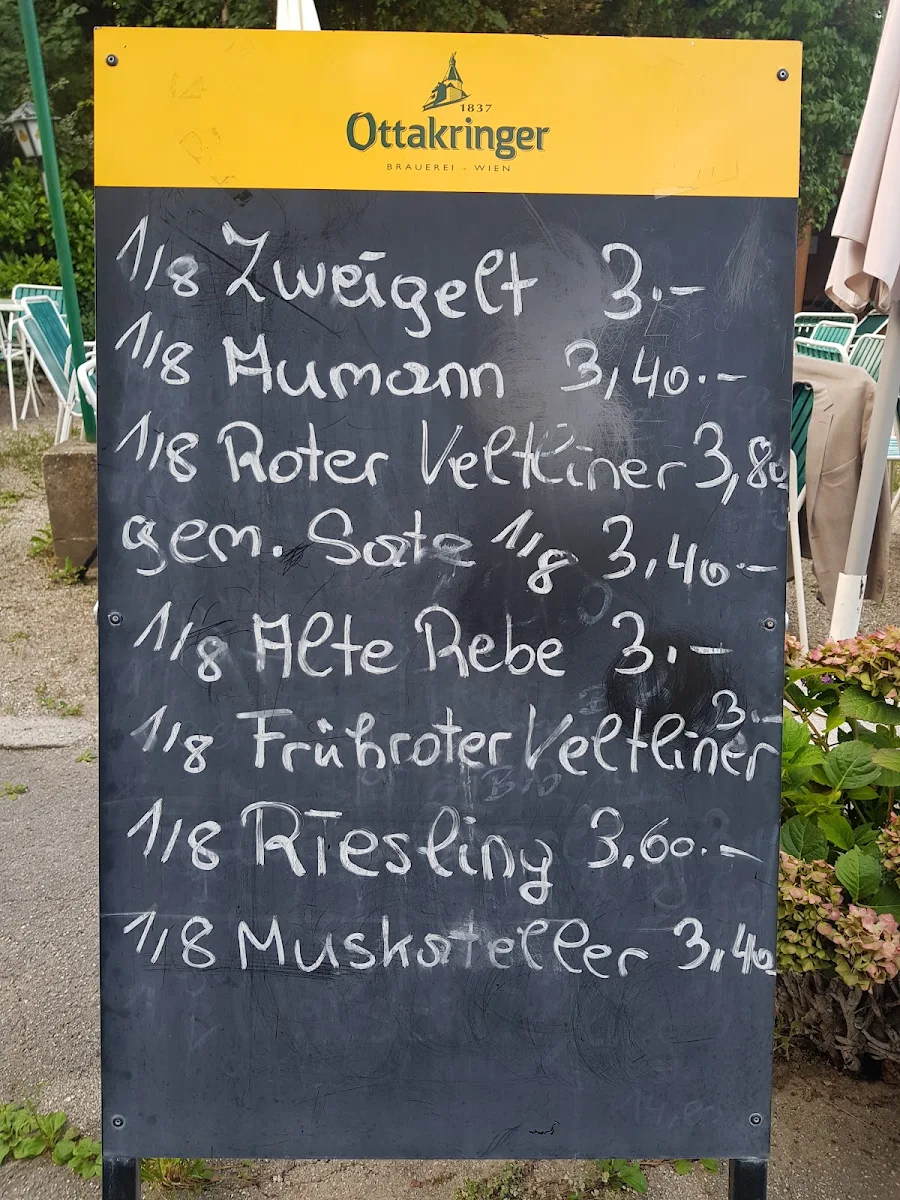 1837
Ottakringer
BRAUEREI - WIEN
1/8 Zweigelt 3.-
1/8 Humann 3,40.-
1/8 Roter Veltliner 3,80
gem. Satz 1/8 3,40.-
1/8 Alte Rebe 3.-
1/8 Frühroter Veltliner 3.-
1/8 Riesling 3.60.-
1/8 Muskateller 3,40